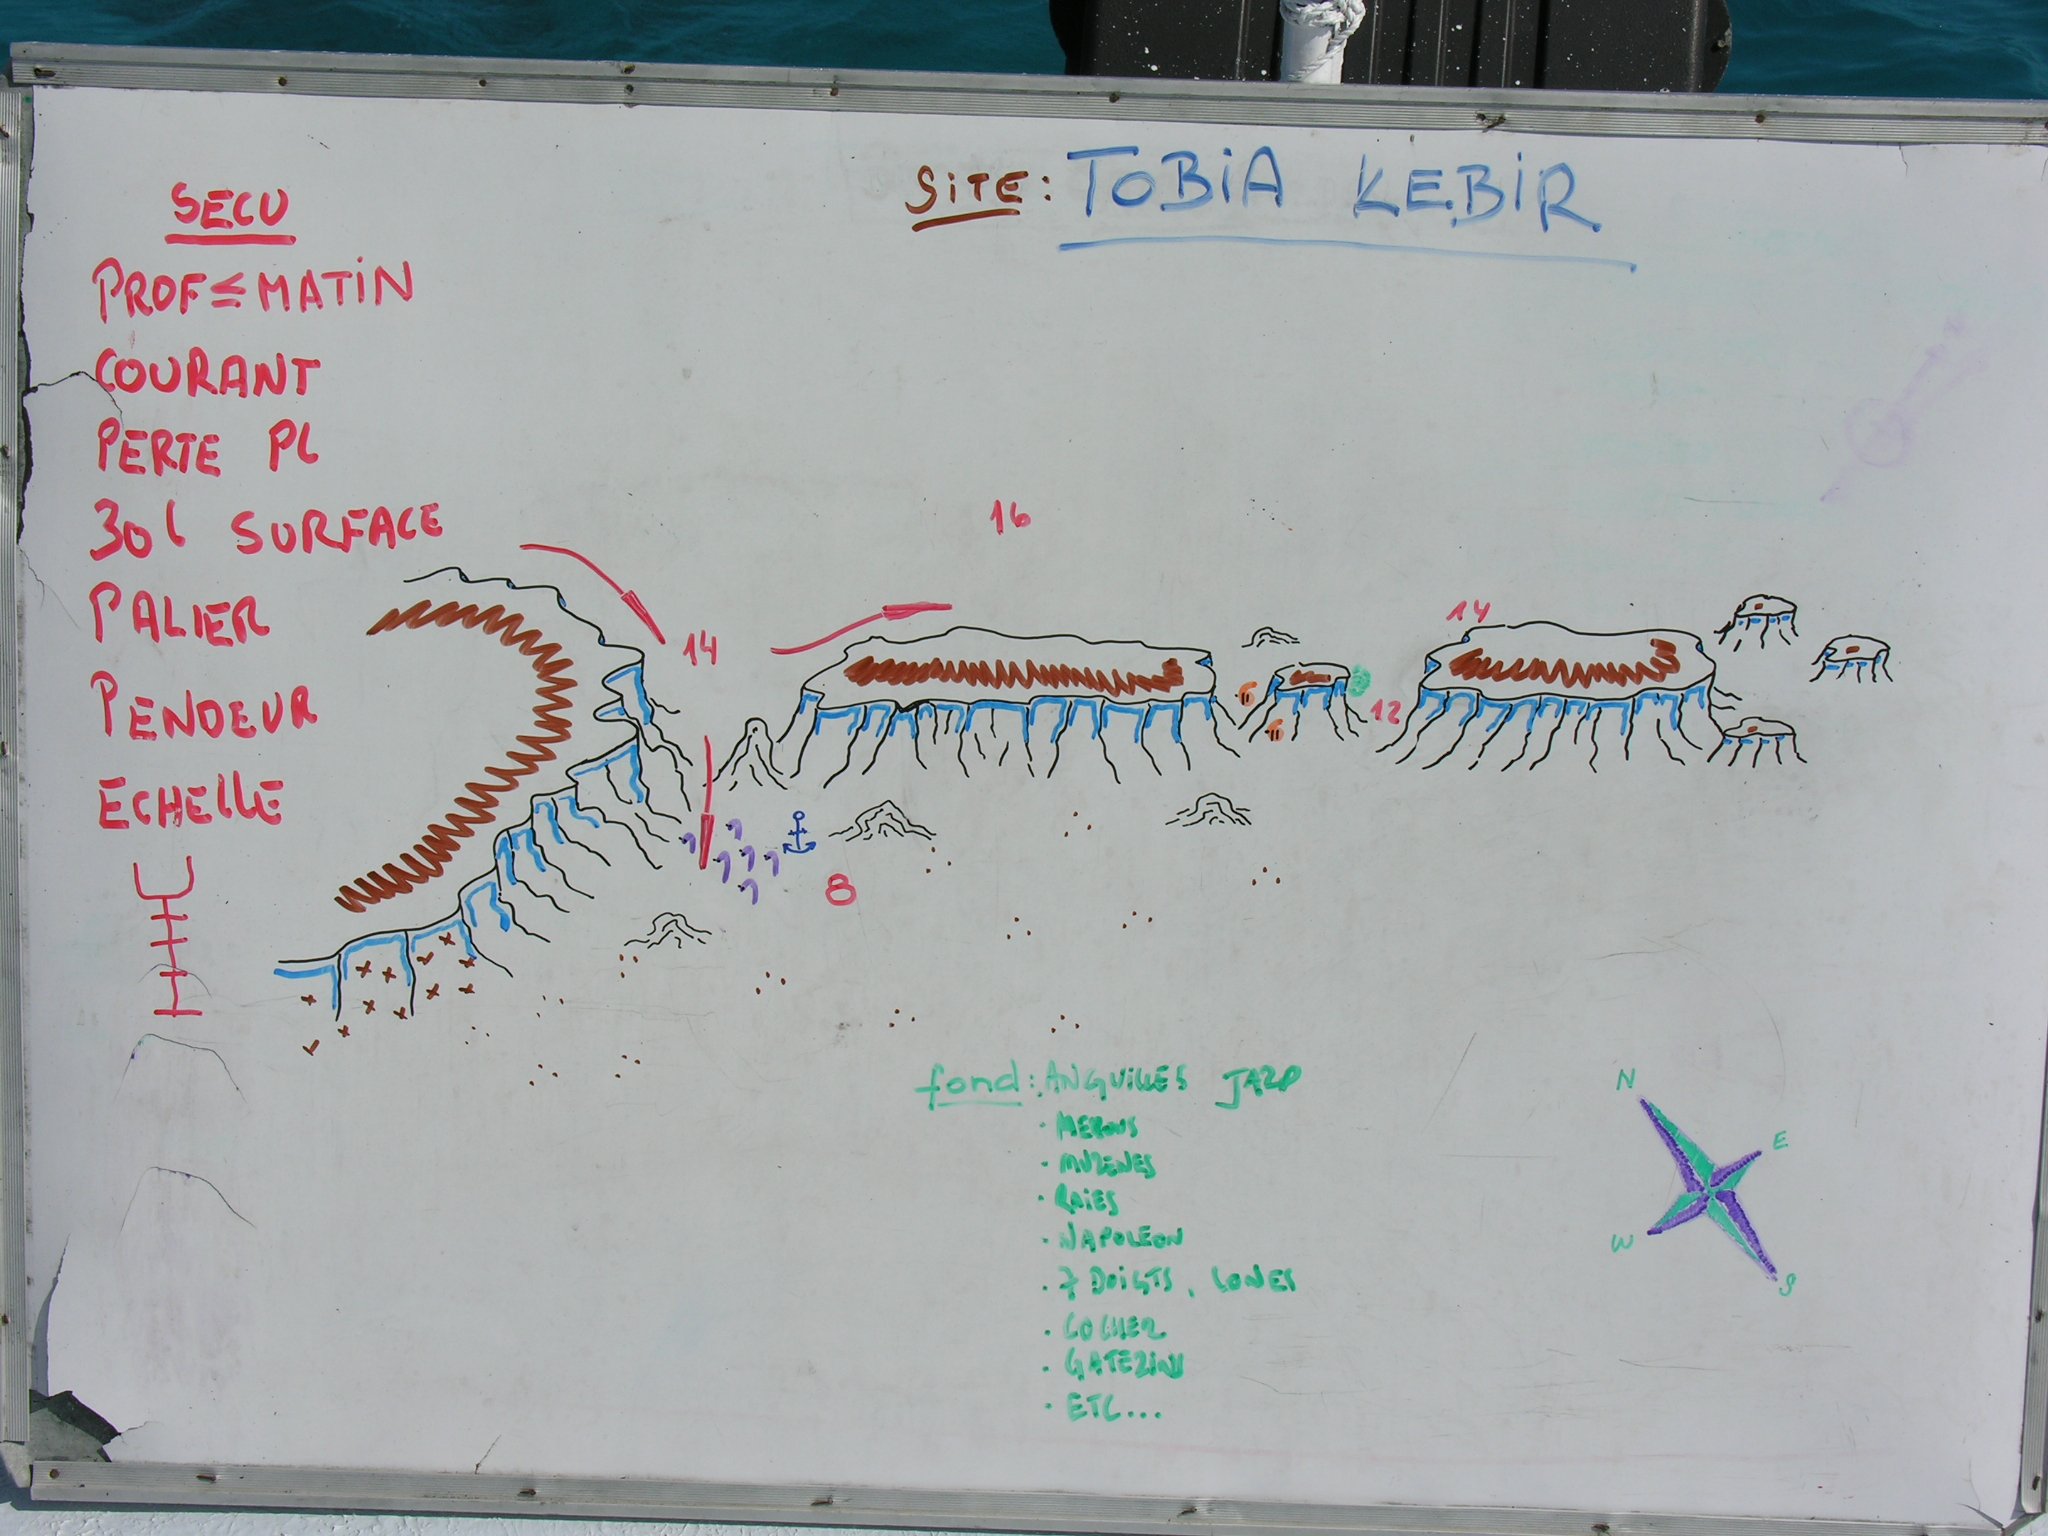 SITE: TOBIA KEBIR
SECU
PROF ≤ MATIN
COURANT
PERTE PL
30l SURFACE
PALIER
PENDEUR
ECHELLE
16
14
14
12
8
fond: ANGUILLES JARD
· MEROUS
· MURENES
· RAIES
· NAPOLEON
· 7 DOIGTS, CONES
· COCHER
· GATERINS
· ETC...
N
E
W
S